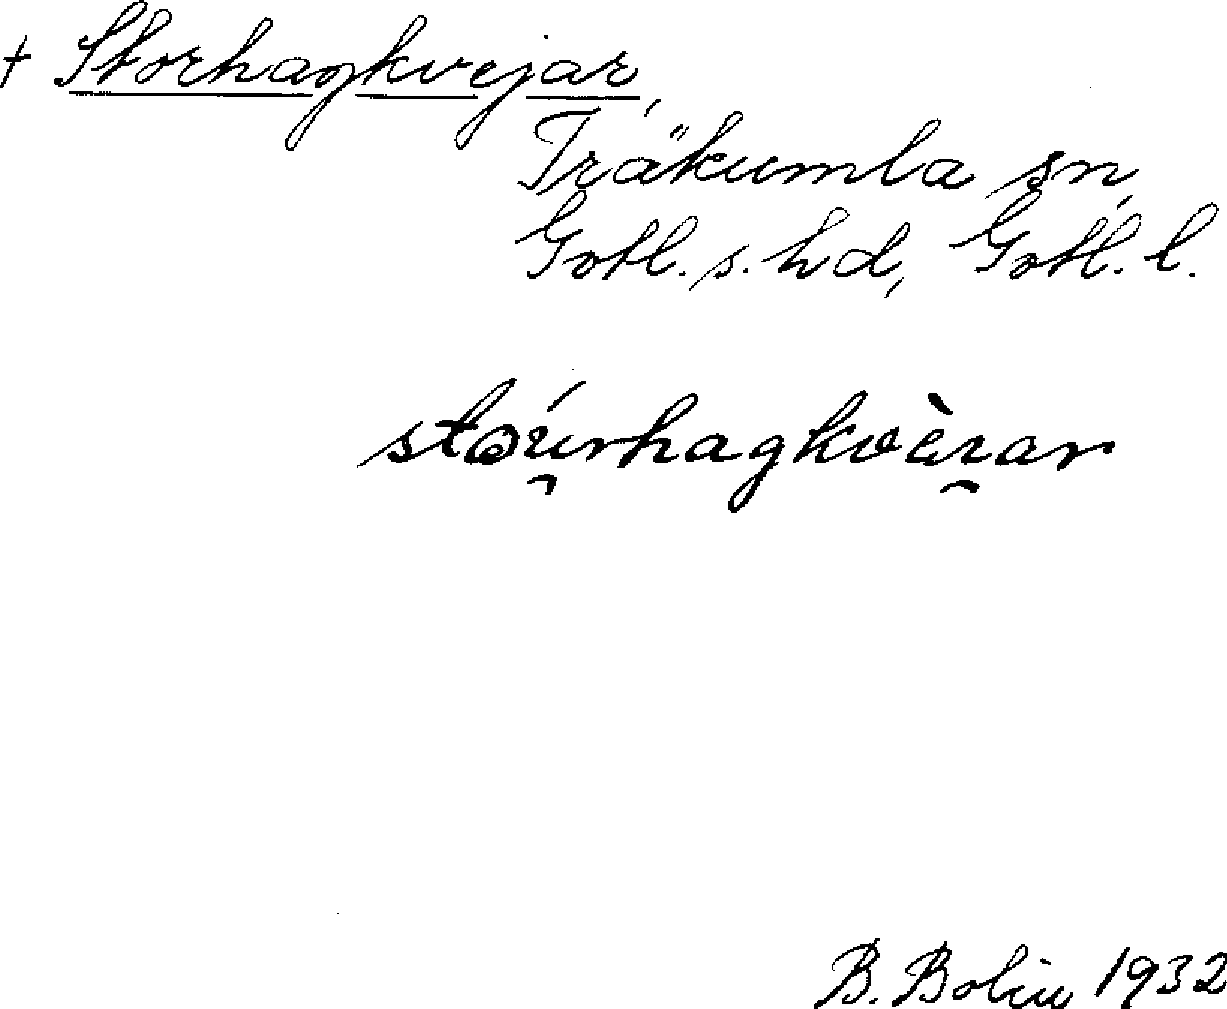 + Storhagkvejar,
Träkumla sn,
Gotl. s. hd, Gotl. l.
stoúrhagkvèɪar
B. Bolin 1932